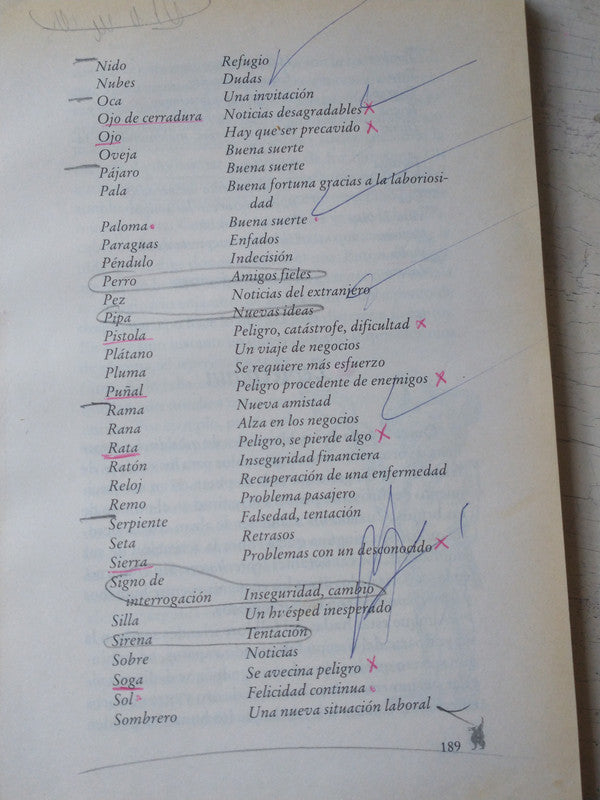 Nido Refugio
Nubes Dudas
Oca Una invitación
Ojo de cerradura Noticias desagradables
Ojo Hay que ser precavido
Oveja Buena suerte
Pájaro Buena suerte
Pala Buena fortuna gracias a la laboriosi-
dad
Paloma Buena suerte
Paraguas Enfados
Péndulo Indecisión
Perro Amigos fieles
Pez Noticias del extranjero
Pipa Nuevas ideas
Pistola Peligro, catástrofe, dificultad
Plátano Un viaje de negocios
Pluma Se requiere más esfuerzo
Puñal Peligro procedente de enemigos
Rama Nueva amistad
Rana Alza en los negocios
Rata Peligro, se pierde algo
Ratón Inseguridad financiera
Reloj Recuperación de una enfermedad
Remo Problema pasajero
Serpiente Falsedad, tentación
Seta Retrasos
Sierra Problemas con un desconocido
Signo de
interrogación Inseguridad, cambio
Silla Un huésped inesperado
Sirena Tentación
Sobre Noticias
Soga Se avecina peligro
Sol Felicidad continua
Sombrero Una nueva situación laboral
189